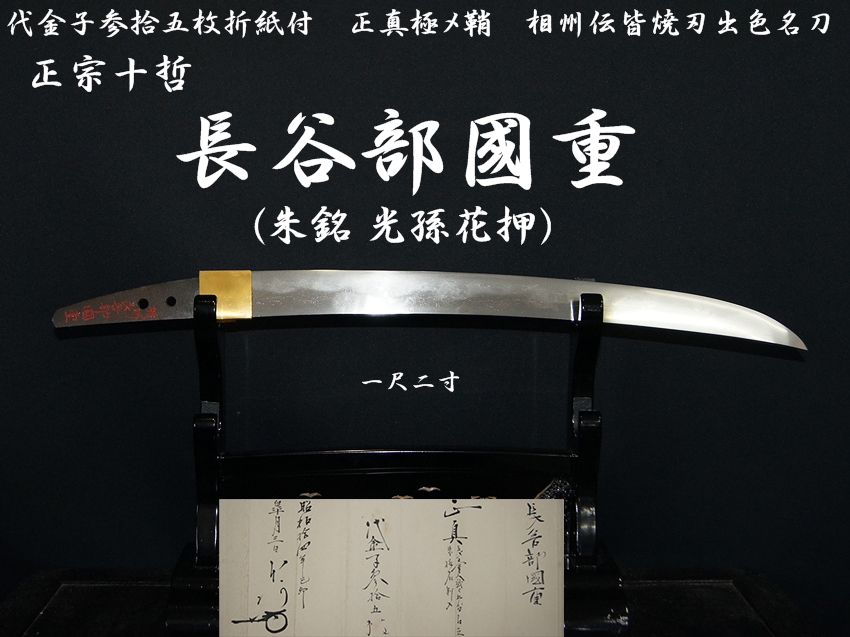 代金子参拾五枚折紙付　正真極〆鞘　相州伝皆焼刃出色名刀
正宗十哲
長谷部國重
(朱銘 光孫花押)
一尺二寸
長谷部國重
正真
代金子参拾五枚